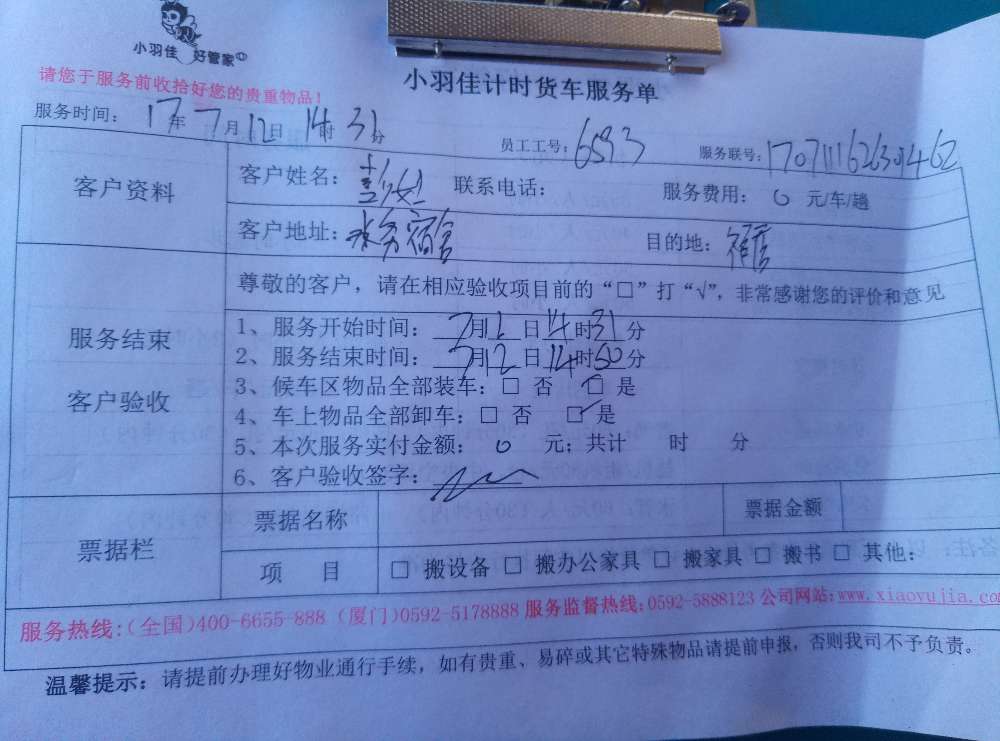 小羽佳 好管家
小羽佳计时货车服务单
请您于服务前收拾好您的贵重物品！
服务时间： 17年7月12日14时31分
员工工号：6593 服务联号：
客户资料
客户姓名： 联系电话： 服务费用： 0 元/车/趟
客户地址： 宿舍 目的地：
服务结束
客户验收
尊敬的客户，请在相应验收项目前的“□”打“√”，非常感谢您的评价和意见
1、服务开始时间： 7月12日14时31分
2、服务结束时间： 7月12日14时50分
3、候车区物品全部装车：□ 否 ☑ 是
4、车上物品全部卸车：□ 否 ☑ 是
5、本次服务实付金额： 0 元；共计 时 分
6、客户验收签字：
票据栏
票据名称 票据金额
项 目 □ 搬设备 □ 搬办公家具 □ 搬家具 □ 搬书 □ 其他：
服务热线:(全国)400-6655-888 (厦门)0592-5178888 服务监督热线:0592-5888123 公司网站:www.xiaoyujia.co
温馨提示：请提前办理好物业通行手续，如有贵重、易碎或其它特殊物品请提前申报，否则我司不予负责。